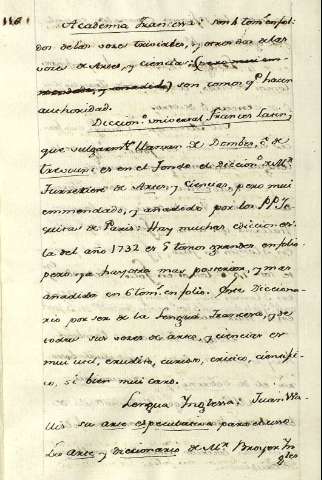 Academia Francesa: son 4 tom.s en fol.
dos de las voces triviales, y otros dos de las
voces de Artes, y ciencia: (pero mui em-
mendado, y añadido) son tomos q.e hacen
authoridad.
Diccion.o universal Frances Latin,
que vulgarm.te llaman de Dombes, ô de
trevoux: es en el fondo el diccion.o de M.r
Furretiere de Artes, y Ciencias, pero mui
emmendado, y añadido por los PP. Je-
suitas de Paris: Hay muchas ediciones:
la del año 1732 es 5 tomos grandes en folio
pero ya hay otra mas posterior, y mas
añadida en 6 tom.s en folio. Este Diccion-
ario por ser de la Lengua Francesa, y de
todas sus voces de artes, y ciencias es
mui util, erudito, curioso, critico, cientifi-
co, si bien mui caro.
Lengua Inglesa: Juan Wa-
llis su arte especulativa para
Los Arte y Diccionario de M.r Broyer In-
gles